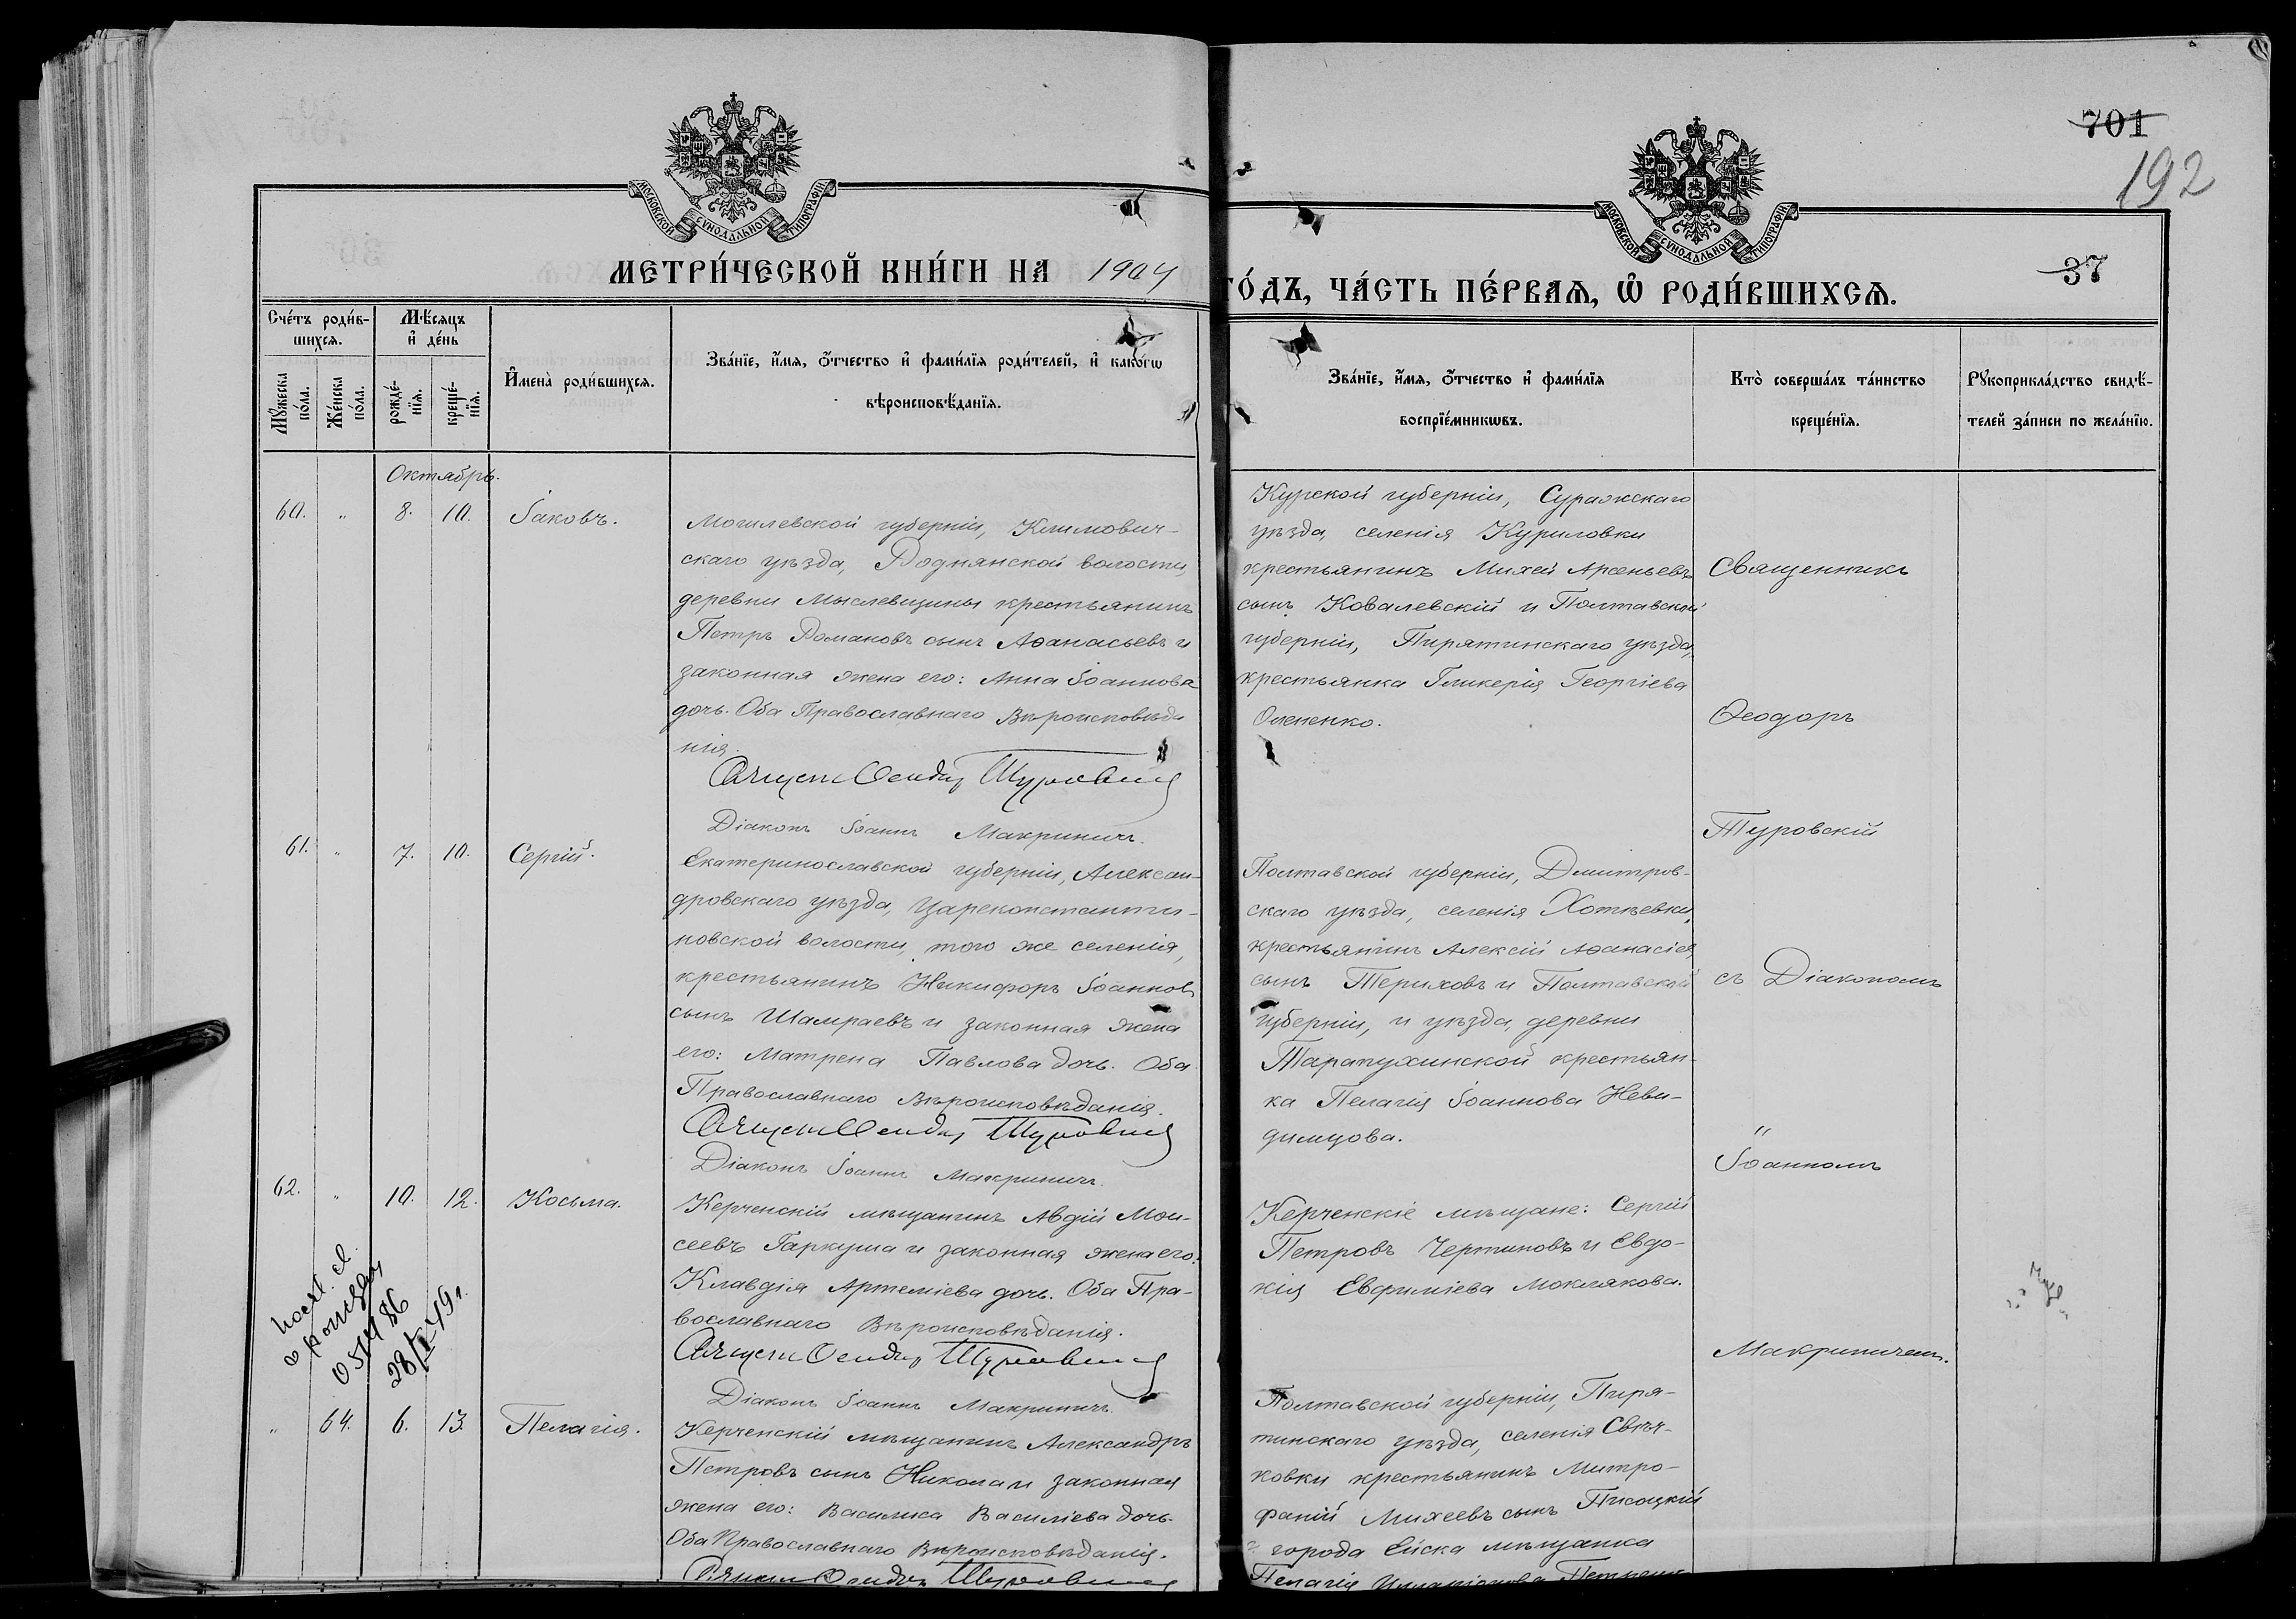 701
192
37
МОСКОВСКОЙ СѴНОДАЛЬНОЙ ТИПОГРАФІИ
МОСКОВСКОЙ СѴНОДАЛЬНОЙ ТИПОГРАФІИ
МЕТРИ́ЧЕСКОЙ КНИ́ГИ НА 1904
ГО́ДЪ, ЧА́СТЬ ПЕ́РВАѦ, Ѡ РОДИ́ВШИХСѦ.
Сче́тъ роди́в-
шихсѧ.
Мꙋ́жеска по́ла.
Же́нска по́ла.
Мѣ́сѧцъ
и҆ де́нь
рожде́-
нїѧ.
креще́-
нїѧ.
И҆мена̀ роди́вшихсѧ.
Зва́нїе, и҆́мѧ, ѻ҆́тчество и҆ фами́лїѧ роди́телей, и҆ како́гѡ
вѣроисповѣ́данїѧ.
Зва́нїе, и҆́мѧ, ѻ҆́тчество и҆ фами́лїѧ
воспрїе́мникѡвъ.
Кто̀ соверша́лъ та́инство
креще́нїѧ.
Рꙋкоприкла́дство свидѣ́-
телей за́писи по жела́нїю.
Октябрь.
60. " 8. 10. Іаковъ.
Могилевской губерніи, Климович-
скаго уѣзда, Роднянской волости,
деревни Мыслевщины крестьянинъ
Петръ Романовъ сынъ Аѳанасьевъ и
законная жена его: Анна Іоаннова
дочь. Оба Православнаго Вѣроисповѣда
нія.
Діаконъ Іоаннъ Макриничъ.
Курской губерніи, Суражскаго
уѣзда, селенія Куриловки
крестьянинъ Михей Арсеньевъ
сынъ Ковалевскій и Полтавской
губерніи, Пирятинскаго уѣзда,
крестьянка Гликерія Георгіева
Олененко.
Священникъ
Ѳеодоръ
Туровскій
съ Діакономъ
"
Іоанномъ
Макриничемъ.
61. " 7. 10. Сергій.
Екатеринославской губерніи, Алексан-
дровскаго уѣзда, Цареконстанти-
новской волости, того же селенія,
крестьянинъ Никифоръ Іоанновъ
сынъ Шамраевъ и законная жена
его: Матрена Павлова дочь. Оба
Православнаго Вѣроисповѣданія.
Діаконъ Іоаннъ Макриничъ.
Полтавской губерніи, Дмитров-
скаго уѣзда, селенія Хотѣевки,
крестьянинъ Алексій Аѳанасіев
сынъ Териховъ и Полтавской
губерніи, и уѣзда, деревни
Тарапухинской крестьян-
ка Пелагія Іоаннова Неви-
димцова.
62. " 10. 12. Косьма.
Керченскій мѣщанинъ Авдій Мои-
сеевъ Гаркуша и законная жена его:
Клавдія Артеміева дочь. Оба Пра-
вославнаго Вѣроисповѣданія.
Діаконъ Іоаннъ Макриничъ.
Керченскіе мѣщане: Сергій
Петровъ Чертиновъ и Евдо-
кія Евфиміева Моклякова.
" 64. 6. 13. Пелагія.
Керченскій мѣщанинъ Александръ
Петровъ сынъ Никола и законная
жена его: Василиса Василіева дочь.
Оба Православнаго Вѣроисповѣданія.
Полтавской губерніи, Пиря-
тинскаго уѣзда, селенія Свѣч-
ковки крестьянинъ Митро-
фаній Михеевъ сынъ Писоцкій
города Ейска мѣщанка
Пелагія